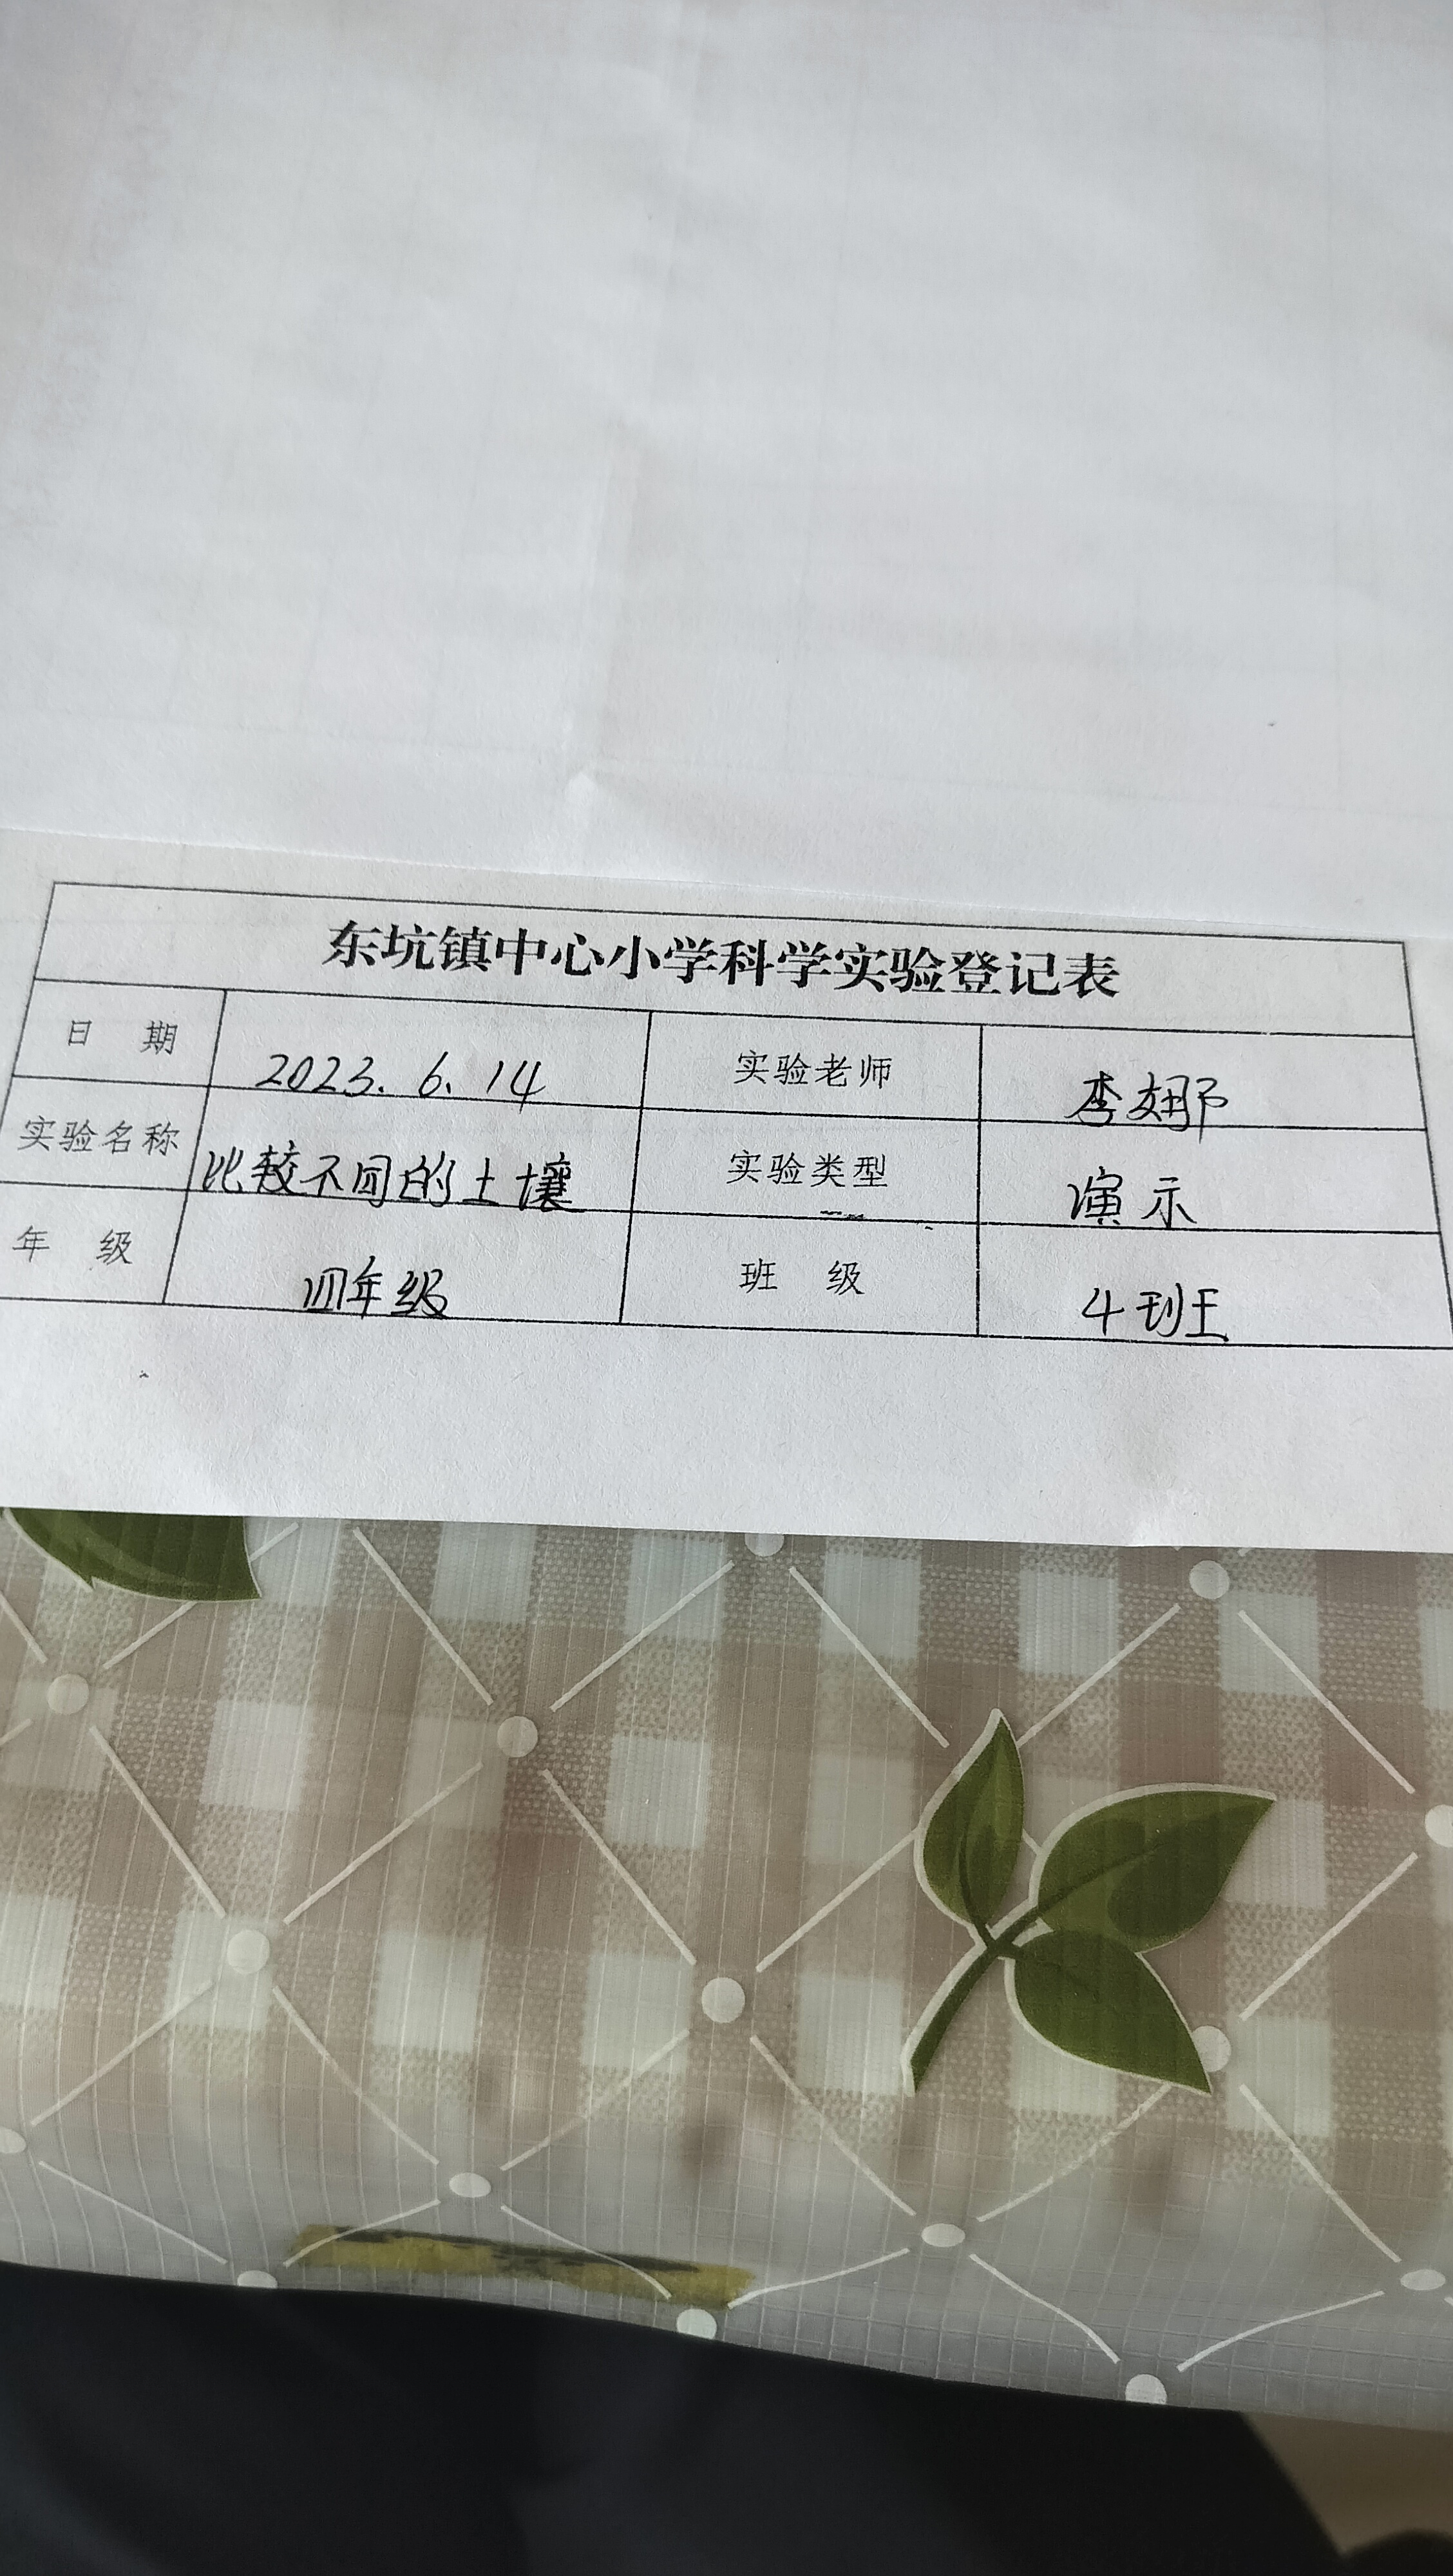 东坑镇中心小学科学实验登记表
日 期 2023.6.14 实验老师 李娜
实验名称 比较不同的土壤 实验类型 演示
年 级 四年级 班 级 4班